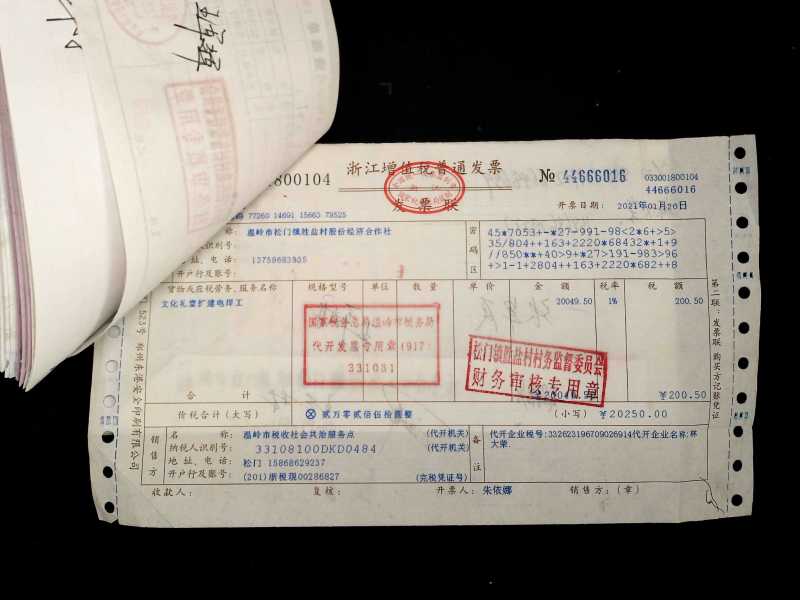 浙江增值税普通发票
发票联
800104
№ 44666016
033001800104
44666016
开票日期：2021年01月26日
77260 14691 15660 79525
温岭市松门镇胜盐村股份经济合作社
纳税人识别号：
地址、电话：
开户行及账号：
密码区
45*7053+-*27-991-98<2*6+>5>
35/804++163+2220*68432*+1+9
//850**+40>9+*27>191-983>96
+>1-1+2804++163+2220*682++8
货物或应税劳务、服务名称 规格型号 单位 数量 单价 金额 税率 税额
文化礼堂扩建电焊工 20049.50 1% 200.50
国家税务总局温岭市税务局
代开发票专用章(917)
331081
松门镇胜盐村村务监督委员会
财务审核专用章
合计 ￥20049.50 ￥200.50
价税合计（大写） ⊗ 贰万零贰佰伍拾圆整 （小写） ￥20250.00
销售方
名称： 温岭市税收社会共治服务点 (代开机关)
纳税人识别号： 33108100DKD0484 (代开机关)
地址、电话： 松门 15868629237
开户行及账号： (201)浙税现00286827 (完税凭证号)
备注
代开企业税号:332623196709026914代开企业名称:林
大荣.
收款人： 复核： 开票人： 朱依娜 销售方：（章）
第二联：发票联 购买方记账凭证
523号 郑州东港安全印刷有限公司